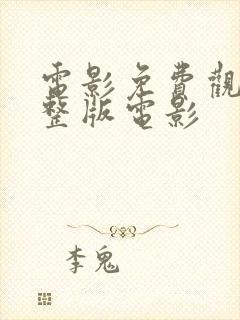 電影免費觀
整版電影
李鬼